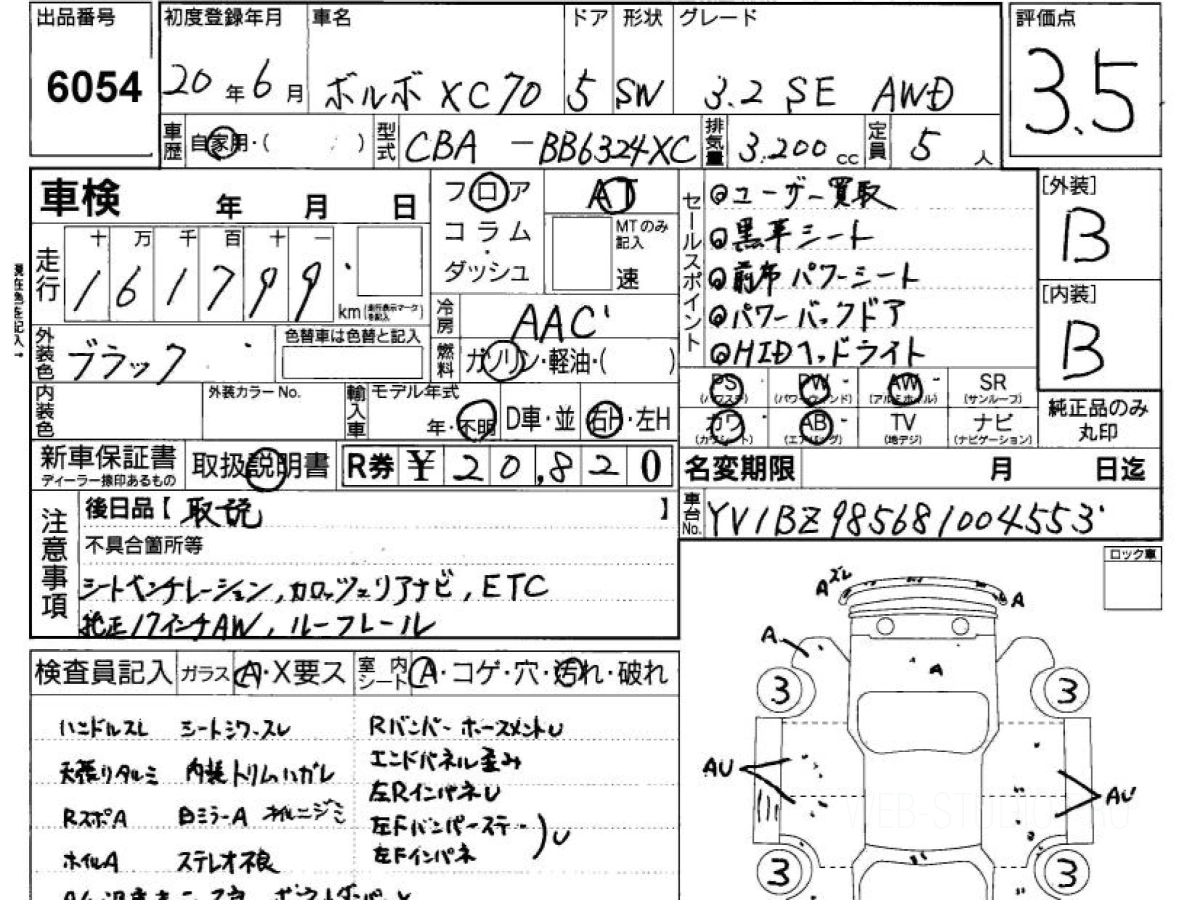 出品番号 初度登録年月 車名 ドア 形状 グレード 評価点
6054 20年6月 ボルボ XC70 5 SW 3.2 SE AWD 3.5
車歴 自家用・( ) 型式 CBA-BB6324XC 排気量 3,200cc 定員 5人
車検 年 月 日
フロア AT
コラム MTのみ記入
ダッシュ 速
セールスポイント
◎ユーザー買取
◎黒革シート
◎前席パワーシート
◎パワーバックドア
◎HIDヘッドライト
[外装]
B
[内装]
B
現在色を記入→
走行 十万千百十一
161799 km(走行表示マークを記入)
冷房 AAC
燃料 ガソリン・軽油・( )
外装色 ブラック 色替車は色替と記入
PS (パワステ) PW (パワーウィンド) AW (アルミホイル) SR (サンルーフ)
カワ (カワシート) AB (エアバッグ) TV (地デジ) ナビ (ナビゲーション)
純正品のみ
丸印
内装色 外装カラーNo. 輸入車 モデル年式 年・不明 D車・並 右H・左H
新車保証書 ディーラー捺印あるもの 取扱説明書 R券 ¥20,820
名変期限 月 日迄
車台No. YV1BZ985681004553
注意事項
後日品【 取説 】
不具合箇所等
シートベンチレーション,カロッツェリアナビ,ETC
純正17インチAW,ルーフレール
ロック車
検査員記入 ガラス A・X要ス 室内シート A・コゲ・穴・汚れ・破れ
ハンドルスレ シートシワ・スレ RバンパーホースメントU
天張りタルミ 内装トリムハガレ エンドパネル歪み
左RインパネU
RスポA BミラーA オイルニジミ 左Fバンパーステー
ホイルA ステレオ不良 左Fインパネ
U
Aズレ
A
A
A
3
3
AU
AU
3
3
WEB-STUDIO.PRO